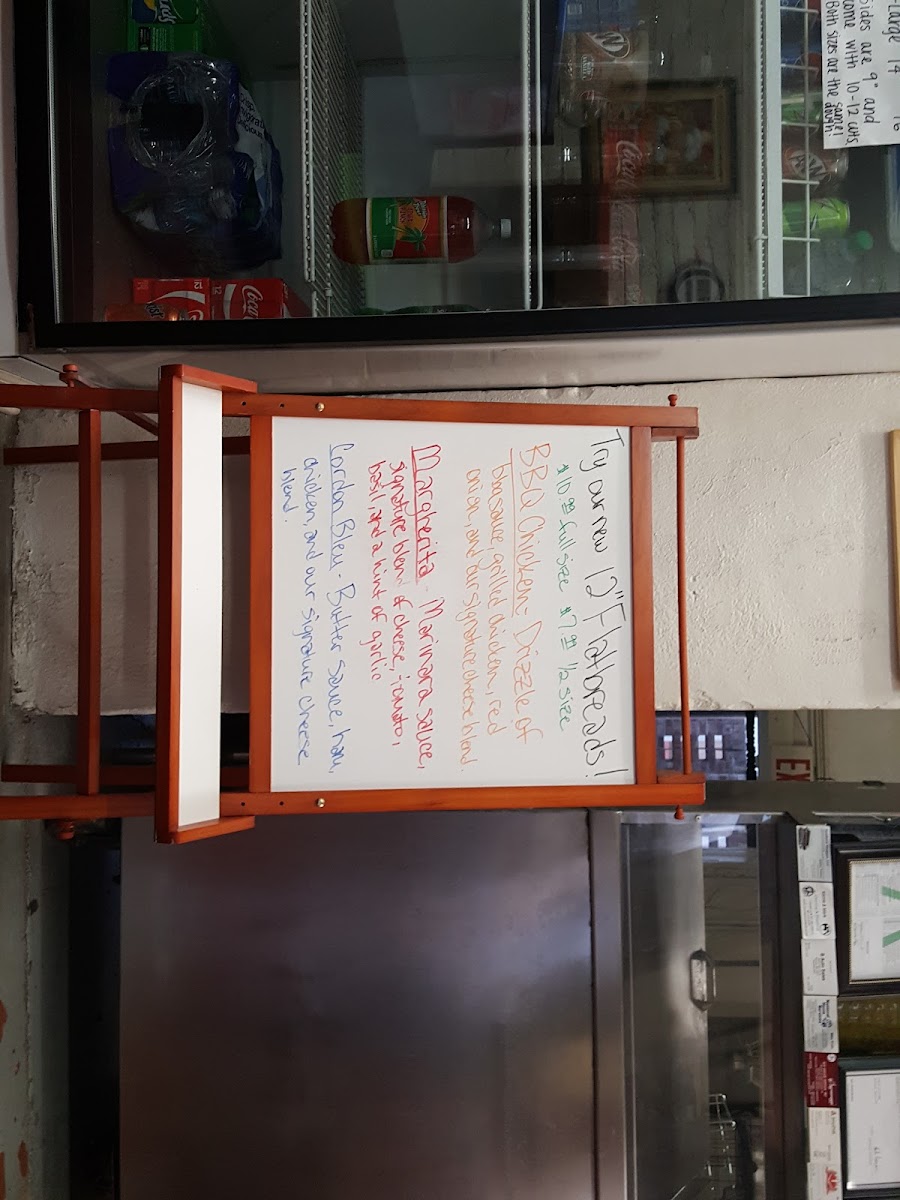 Try our new 12" Flatbreads!
full size 1/2 size
BBQ Chicken- Drizzle of
bbq sauce, grilled chicken, red
onion, and our signature cheese blend.
Margherita - Marinara sauce,
signature blend of cheese, tomato,
basil, and a hint of garlic
Cordon Bleu - Butter sauce, ham,
chicken, and our signature cheese
blend.
Large 14 16
sides are 9" and
come with 10-12 cuts
Both sizes are the same
dough!
Coca-Cola
12